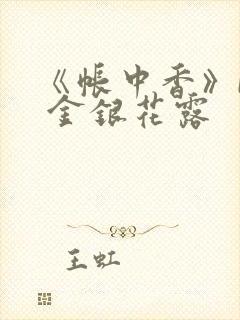 《帐中香》
金银花露
王虹